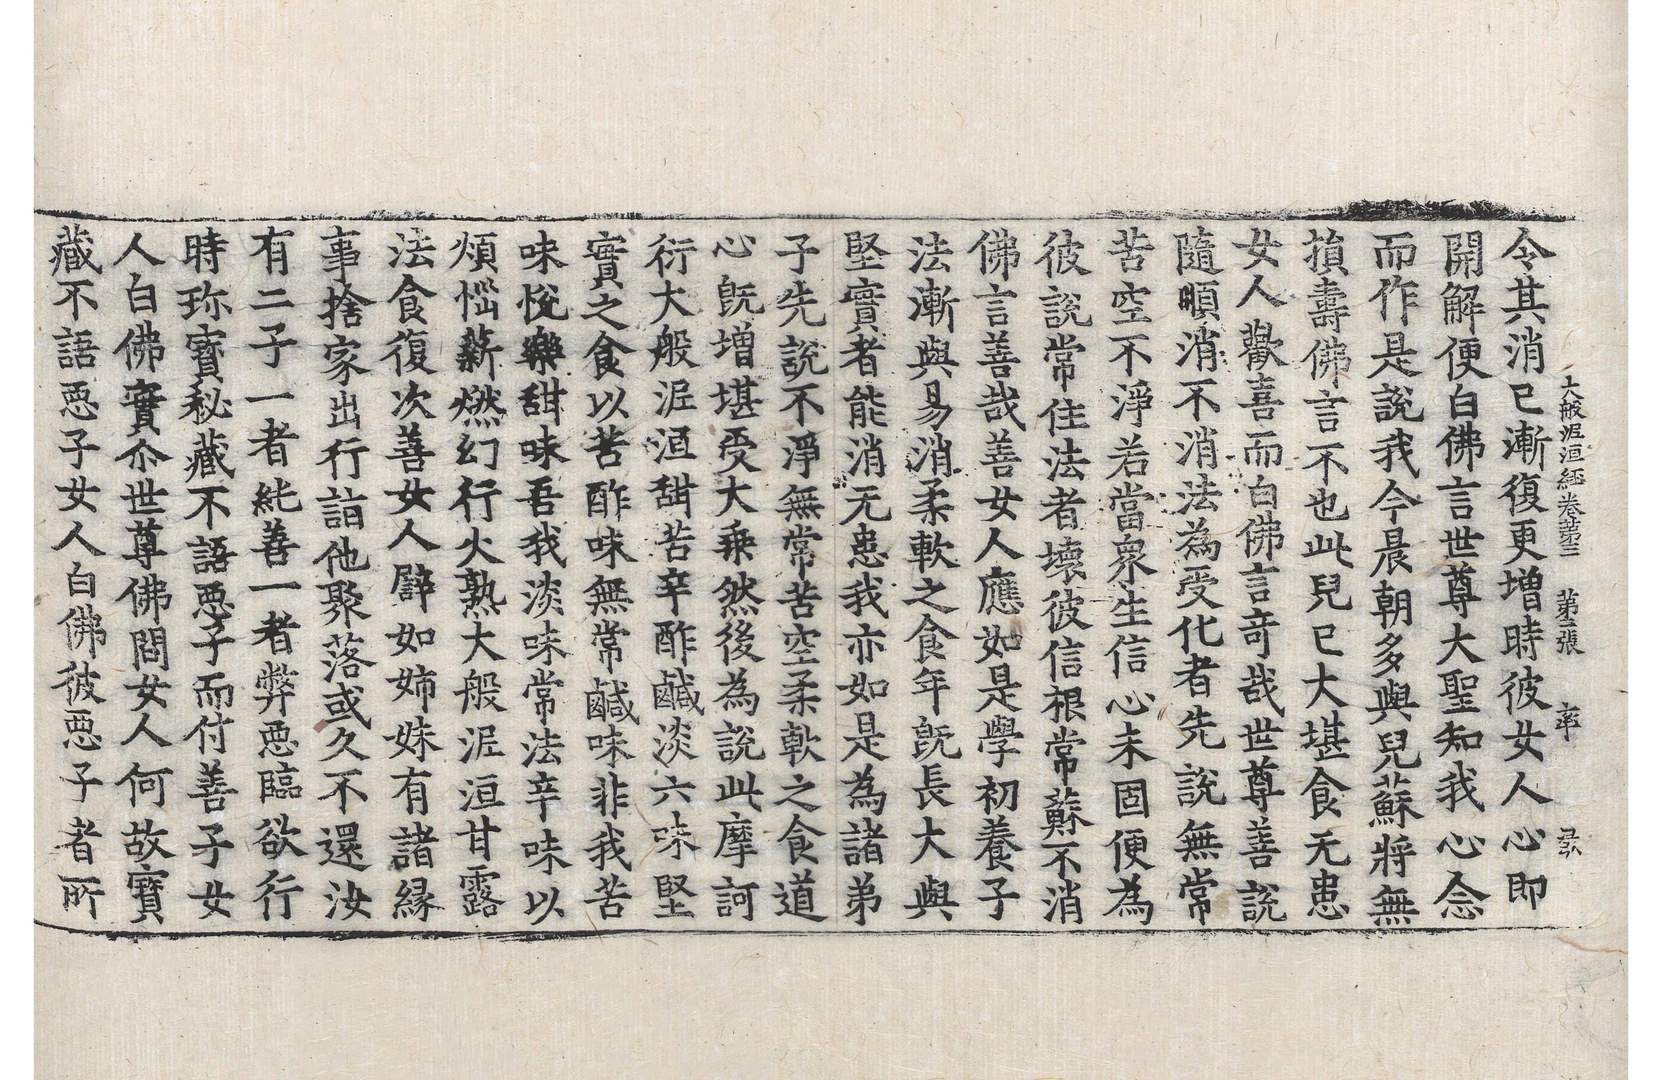 大般泥洹經卷第三 第二張 率
令其消已漸復更增時彼女人心即
開解便白佛言世尊大聖知我心念
而作是說我今晨朝多與兒蘇將無
損壽佛言不也此兒已大堪食无患
女人歡喜而白佛言奇哉世尊善說
隨順消不消法為受化者先說無常
苦空不淨若當衆生信心未固便為
彼說常住法者壞彼信根常蘇不消
佛言善哉善女人應如是學初養子
法漸與易消柔軟之食年旣長大與
堅實者能消无患我亦如是為諸弟
子先說不淨無常苦空柔軟之食道
心旣增堪受大乘然後為說此摩訶
衍大般泥洹甜苦辛酢鹹淡六味堅
實之食以苦酢味無常鹹味非我苦
味悅樂甜味吾我淡味常法辛味以
煩惱薪燃幻行火熟大般泥洹甘露
法食復次善女人譬如姉妹有諸縁
事捨家出行詣他聚落或久不還汝
有二子一者純善一者弊惡臨欲行
時珎寶秘藏不語惡子而付善子女
人白佛實尒世尊佛問女人何故寶
藏不語惡子女人白佛彼惡子者所